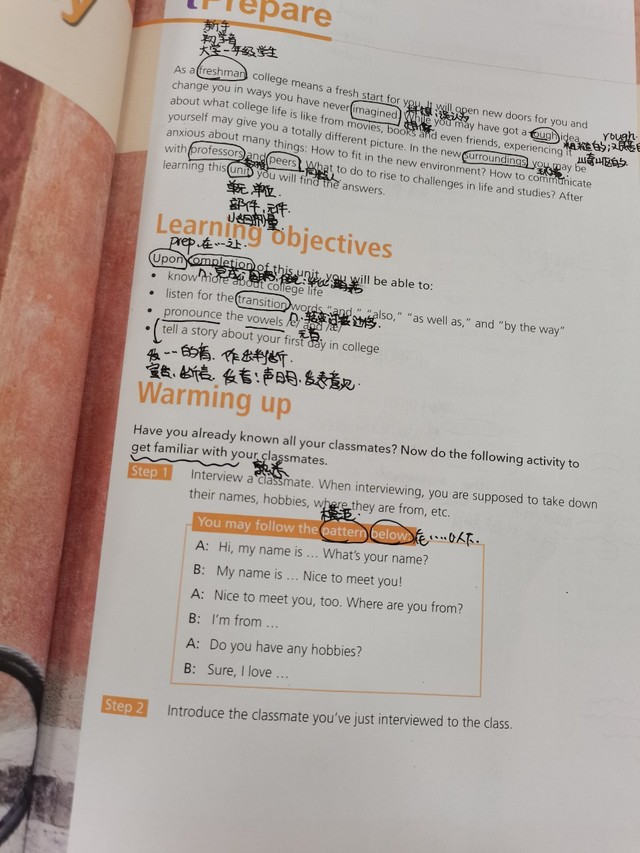 Prepare
新手
初学者
大学一年级学生
As a freshman, college means a fresh start for you. It will open new doors for you and
change you in ways you have never imagined. While you may have got a rough idea
about what college life is like from movies, books and even friends, experiencing it
yourself may give you a totally different picture. In the new surroundings, you may be
anxious about many things: How to fit in the new environment? How to communicate
with professors and peers? What to do to rise to challenges in life and studies? After
learning this unit, you will find the answers.
rough.
环境
单元,单位
部件,元件.
Learning objectives
prep.在…上
Upon completion of this unit, you will be able to:
know more about college life
listen for the transition words "and," "also," "as well as," and "by the way"
pronounce the vowels /e/ and /æ/
元音
tell a story about your first day in college
发…的音.作出判断.
发音;声明.发表意见
Warming up
Have you already known all your classmates? Now do the following activity to
get familiar with your classmates.
熟悉
Step 1 Interview a classmate. When interviewing, you are supposed to take down
their names, hobbies, where they are from, etc.
You may follow the pattern below:
A: Hi, my name is … What's your name?
B: My name is … Nice to meet you!
A: Nice to meet you, too. Where are you from?
B: I'm from …
A: Do you have any hobbies?
B: Sure, I love …
Step 2 Introduce the classmate you've just interviewed to the class.